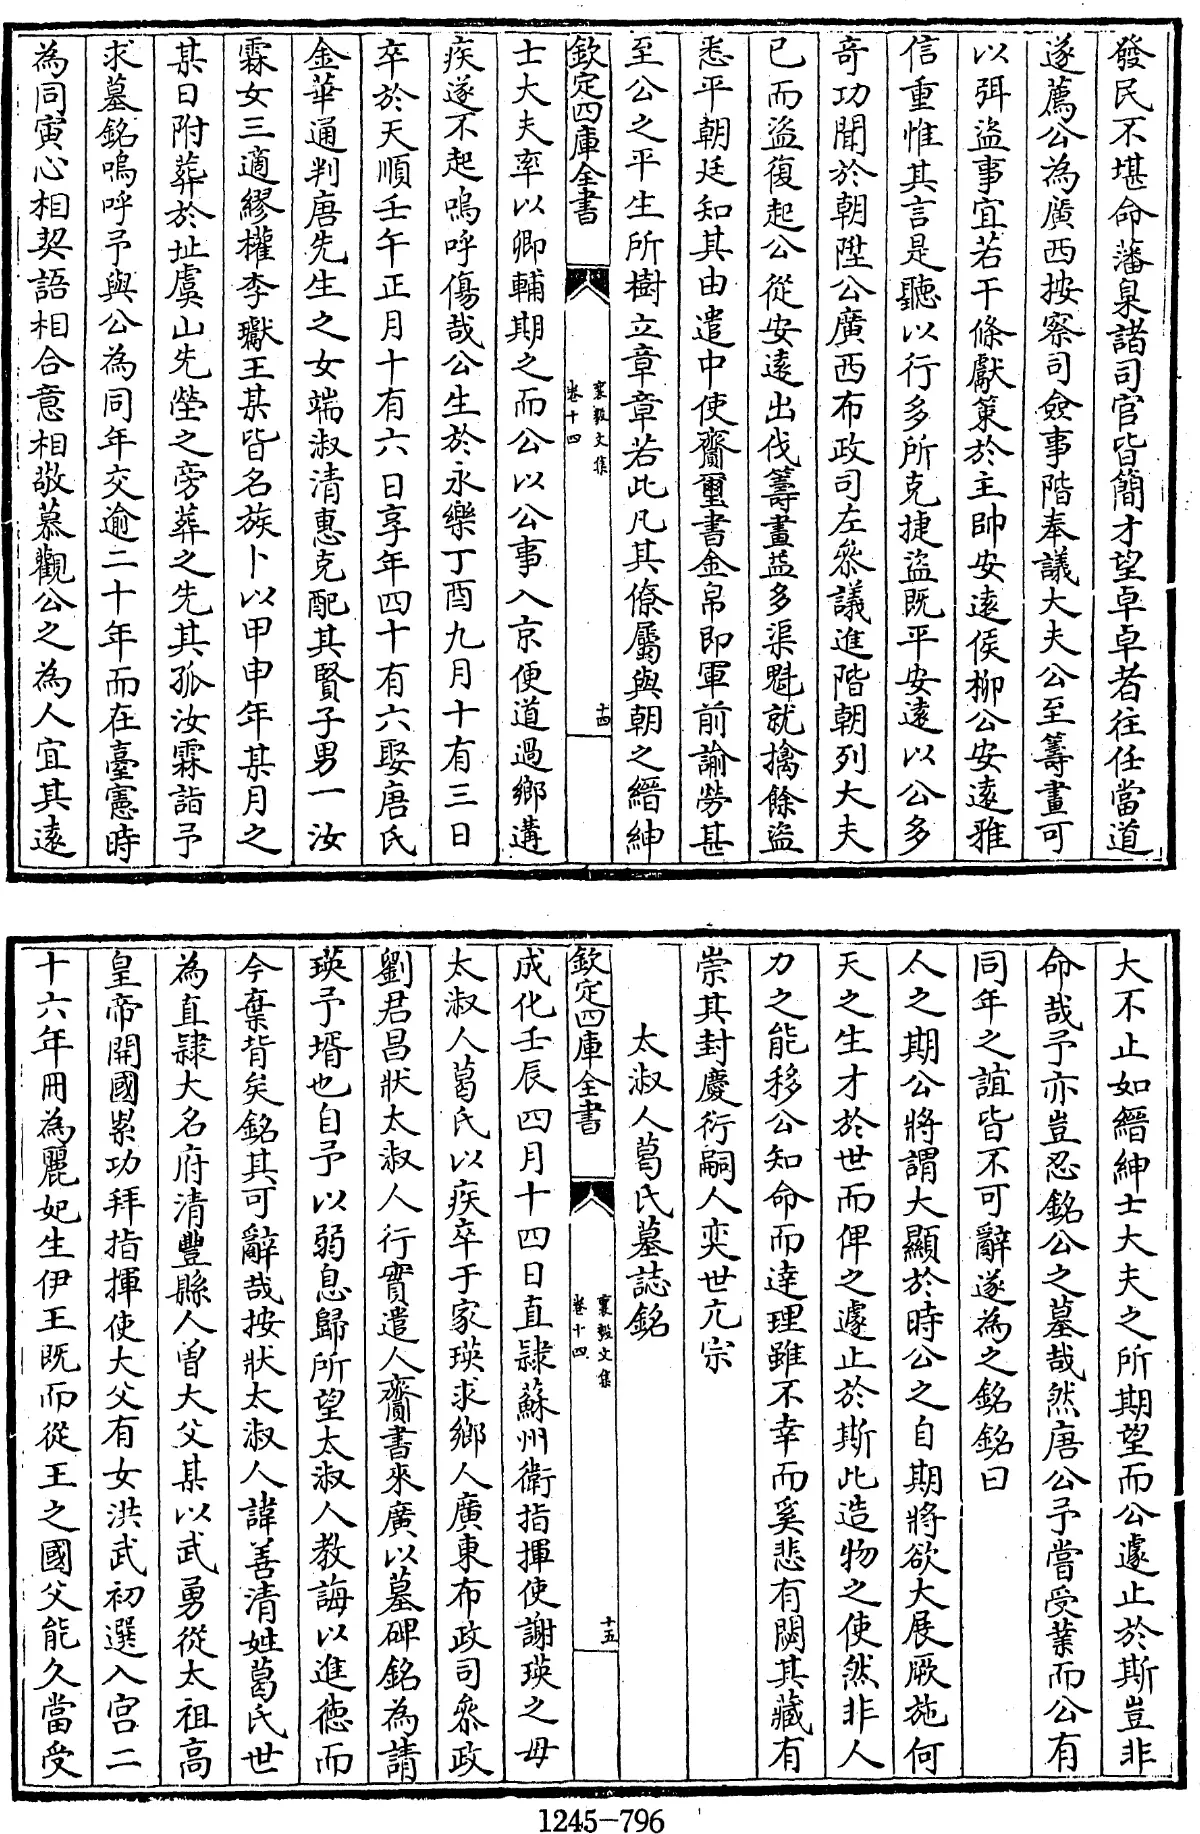 發民不堪命藩臬諸司官皆簡才望卓卓者往任當道
遂薦公為廣西按察司僉事階奉議大夫公至籌畫可
以弭盜事宜若干條獻策於主帥安遠侯柳公安遠雅
信重惟其言是聽以行多所克捷盜既平安遠以公多
奇功聞於朝陞公廣西布政司左叅議進階朝列大夫
已而盜復起公從安遠出伐籌畫益多渠魁就擒餘盜
悉平朝廷知其由遣中使齎璽書金帛即軍前諭勞甚
至公之平生所樹立章章若此凡其僚屬與朝之縉紳
欽定四庫全書
襄毅文集
卷十四
十四
士大夫率以卿輔期之而公以公事入京便道過鄉遘
疾遂不起嗚呼傷哉公生於永樂丁酉九月十有三日
卒於天順壬午正月十有六日享年四十有六娶唐氏
金華通判唐先生之女端淑清惠克配其賢子男一汝
霖女三適繆權李瓛王某皆名族卜以甲申年某月之
某日附葬於址虞山先塋之旁葬之先其孤汝霖詣予
求墓銘嗚呼予與公為同年交逾二十年而在臺憲時
為同寅心相契語相合意相敬慕觀公之為人宜其遠
大不止如縉紳士大夫之所期望而公遽止於斯豈非
命哉予亦豈忍銘公之墓哉然唐公予嘗受業而公有
同年之誼皆不可辭遂為之銘銘曰
人之期公將謂大顯於時公之自期將欲大展厥施何
天之生才於世而俾之遽止於斯此造物之使然非人
力之能移公知命而達理雖不幸而奚悲有閟其藏有
崇其封慶衍嗣人奕世亢宗
太淑人葛氏墓誌銘
欽定四庫全書
襄毅文集
卷十四
十五
成化壬辰四月十四日直隸蘇州衛指揮使謝瑛之母
太淑人葛氏以疾卒于家瑛求鄉人廣東布政司叅政
劉君昌狀太淑人行實遣人齎書來廣以墓碑銘為請
瑛予壻也自予以弱息歸所望太淑人教誨以進德而
今棄背矣銘其可辭哉按狀太淑人諱善清姓葛氏世
為直隸大名府清豐縣人曾大父某以武勇從太祖高
皇帝開國累功拜指揮使大父有女洪武初選入宮二
十六年冊為麗妃生伊王既而從王之國父能久當受
1245-796